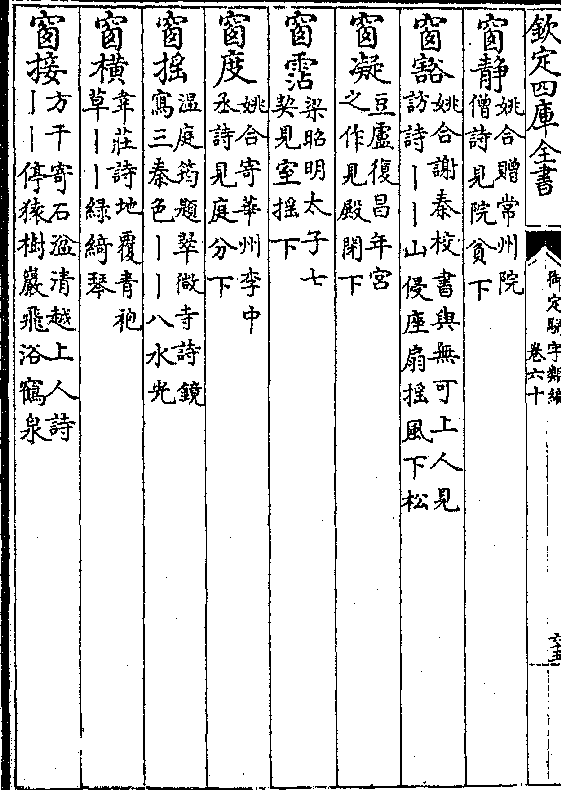 欽定四庫全書
御定駢字類編
卷六十
六十五
窗靜姚合贈常州院僧詩見院貧下
窗豁姚合謝秦校書與無可上人見訪詩丨丨山侵座扇摇風下松
窗凝豆盧復昌年宮之作見殿閉下
窗霑梁昭明太子七契見室摇下
窗度姚合寄華州李中丞詩見庭分下
窗摇温庭筠題翠微寺詩鏡寫三秦色丨丨八水光
窗橫韋莊詩地覆青袍草丨丨緑綺琴
窗接方干寄石湓清越上人詩丨丨停猿樹巖飛浴鶴泉